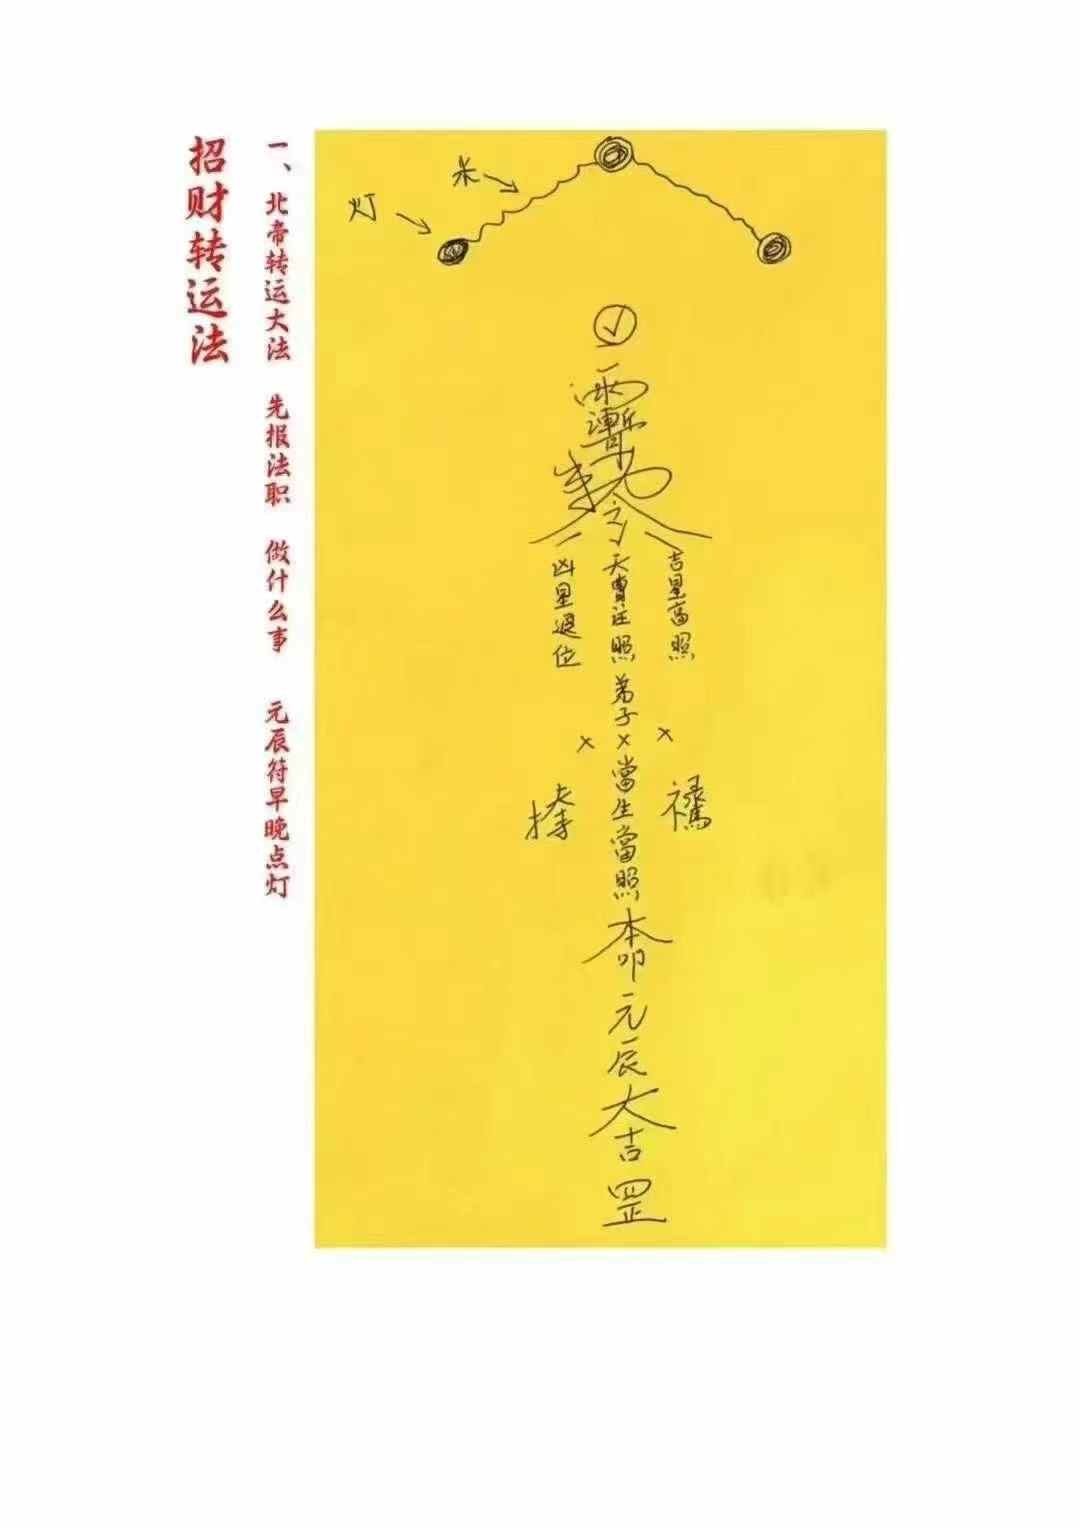 招财转运法
一、北帝转运大法 先报法职 做什么事 元辰符早晚点灯
米
灯
吉星高照
天 注照弟子×當生當照本命元辰大吉罡
凶星退位
× ×